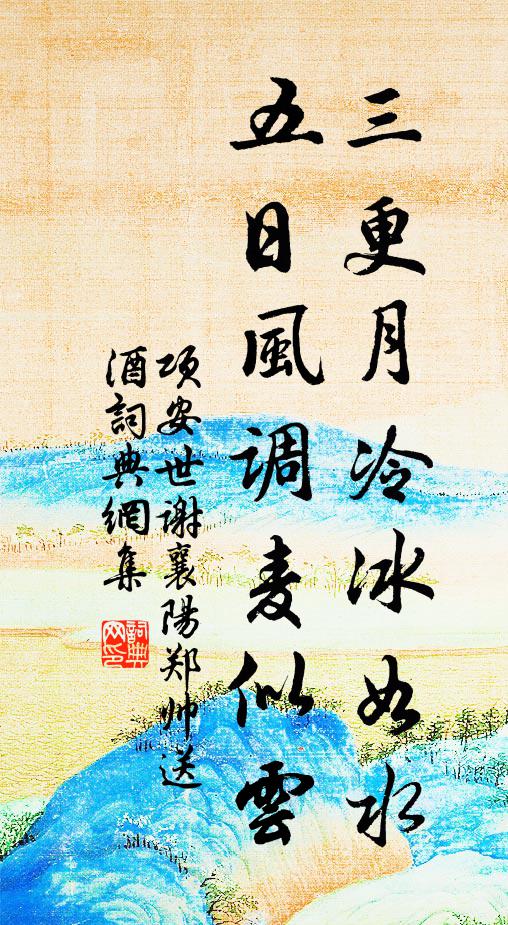 三更月冷冰如水
五日風调麦似雲
项安世谢襄陽郑帅送
酒詞典網集
詞典
网印